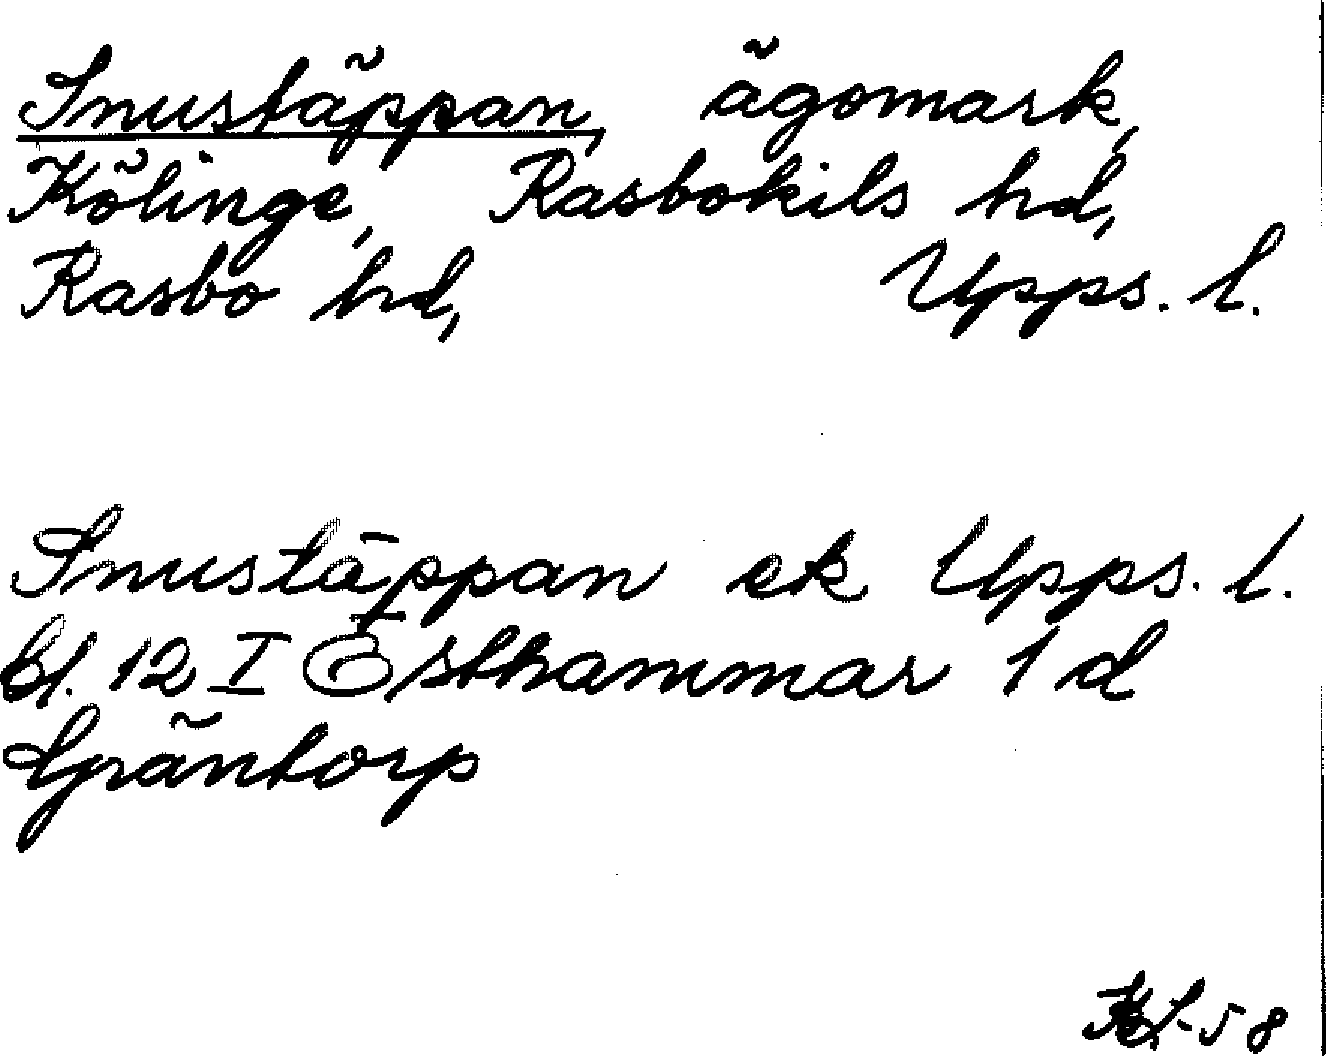 Snustäppan, ägomark,
Kölinge, Rasbokils hd,
Rasbo hd, Upps. l.
Snustäppan ek Upps. l.
bl. 12 I Östhammar 1 d
Gräntorp
-58